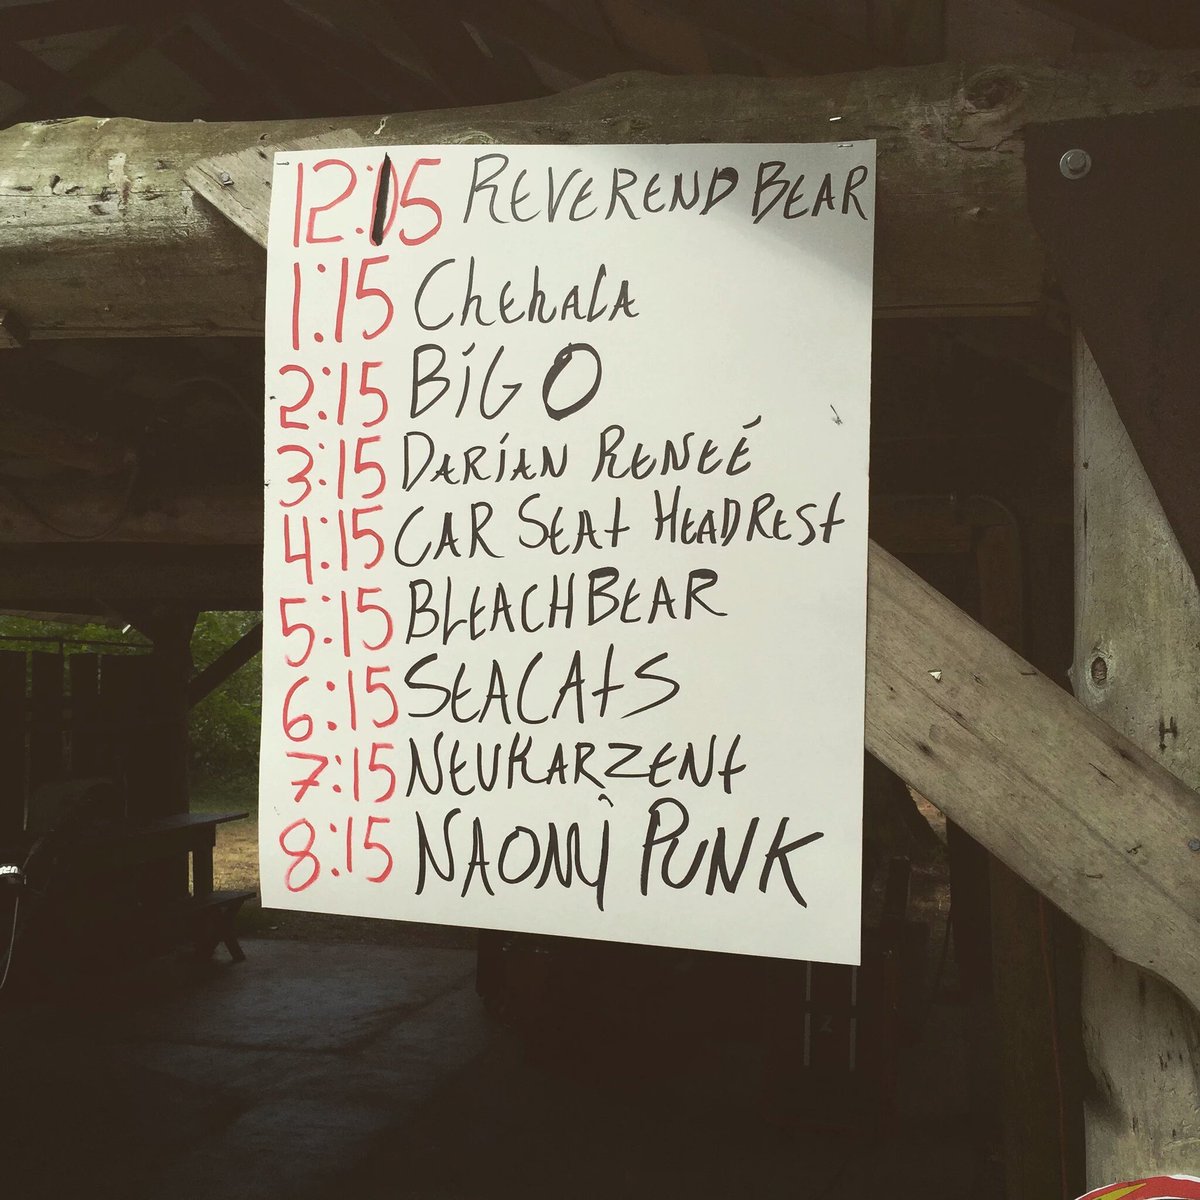 12:15 REVEREND BEAR
1:15 Chehala
2:15 BiG O
3:15 DARiAN RENEÉ
4:15 CAR SEAt HEADRESt
5:15 BLEACHBEAR
6:15 SEACAtS
7:15 NEUKARZENt
8:15 NAOMi PUNK